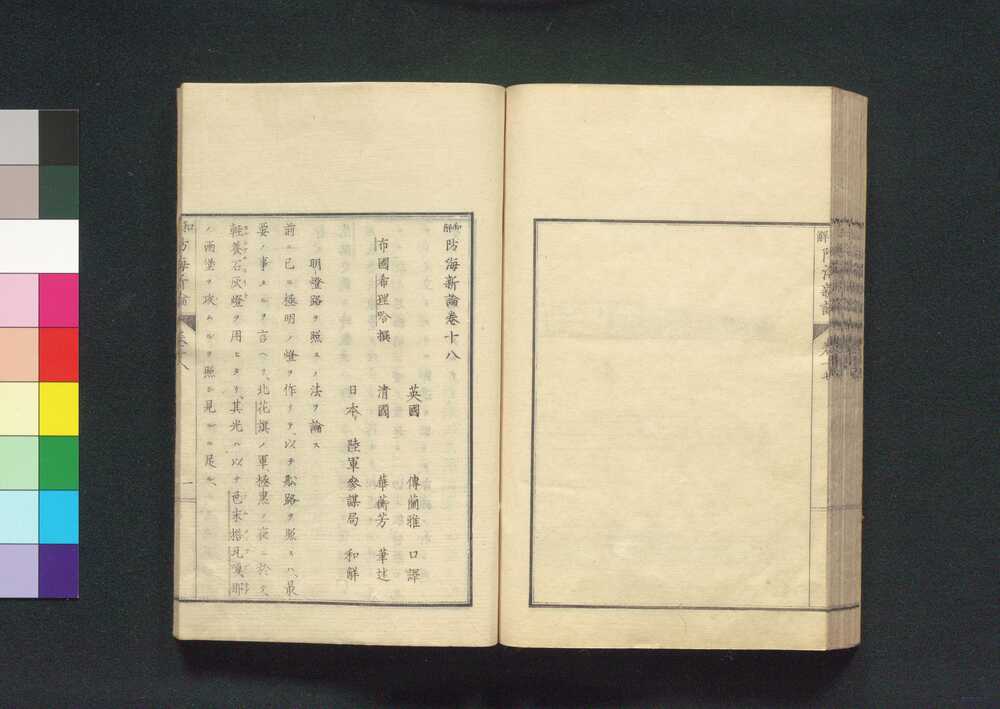 和解 防海新論卷十八
布國希理哈撰
英國 傅蘭雅 口譯
清國 華蘅芳 筆述
日本 陸軍參謀局 和解
明燈路ヲ照スノ法ヲ論ス
前ニ已ニ極明ノ燈ヲ作リテ以テ敵路ヲ照スハ最
要ノ事タルヲ言ヘリ北花旗ノ軍極黑ノ夜ニ於テ
輕養石灰燈ヲ用ヒタリ其光ハ以テ
ノ兩堡ヲ攻ムルヲ照シ見ルニ足ル